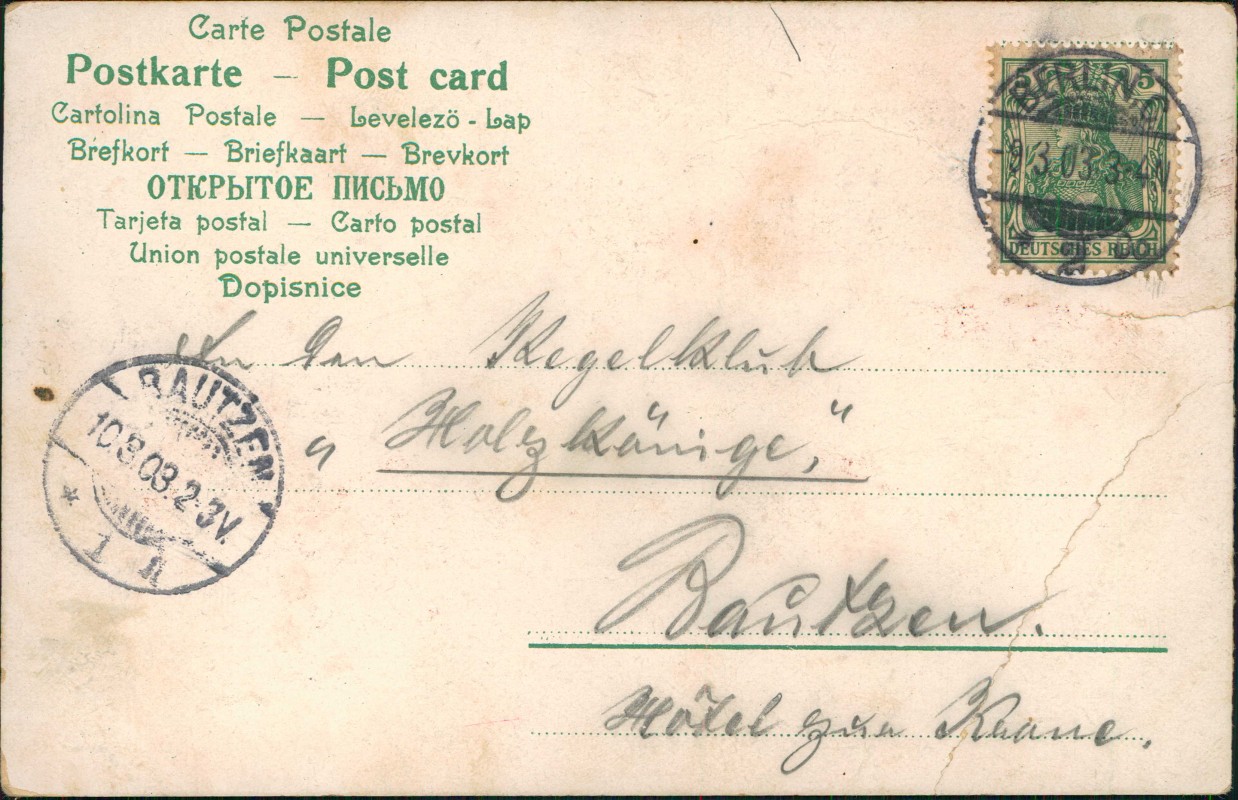 Carte Postale
Postkarte — Post card
Cartolina Postale — Levelezö-Lap
Brefkort — Briefkaart — Brevkort
ОТКРЫТОЕ ПИСЬМО
Tarjeta postal — Carto postal
Union postale universelle
Dopisnice
5
DEUTSCHES REICH
BERLIN C
-9.3.03.3-4N
2
An den Kegelklub
„Holzkönige,“
Bautzen.
Hôtel zur Krone.
BAUTZEN
10.3.03.2-3V.
* 1